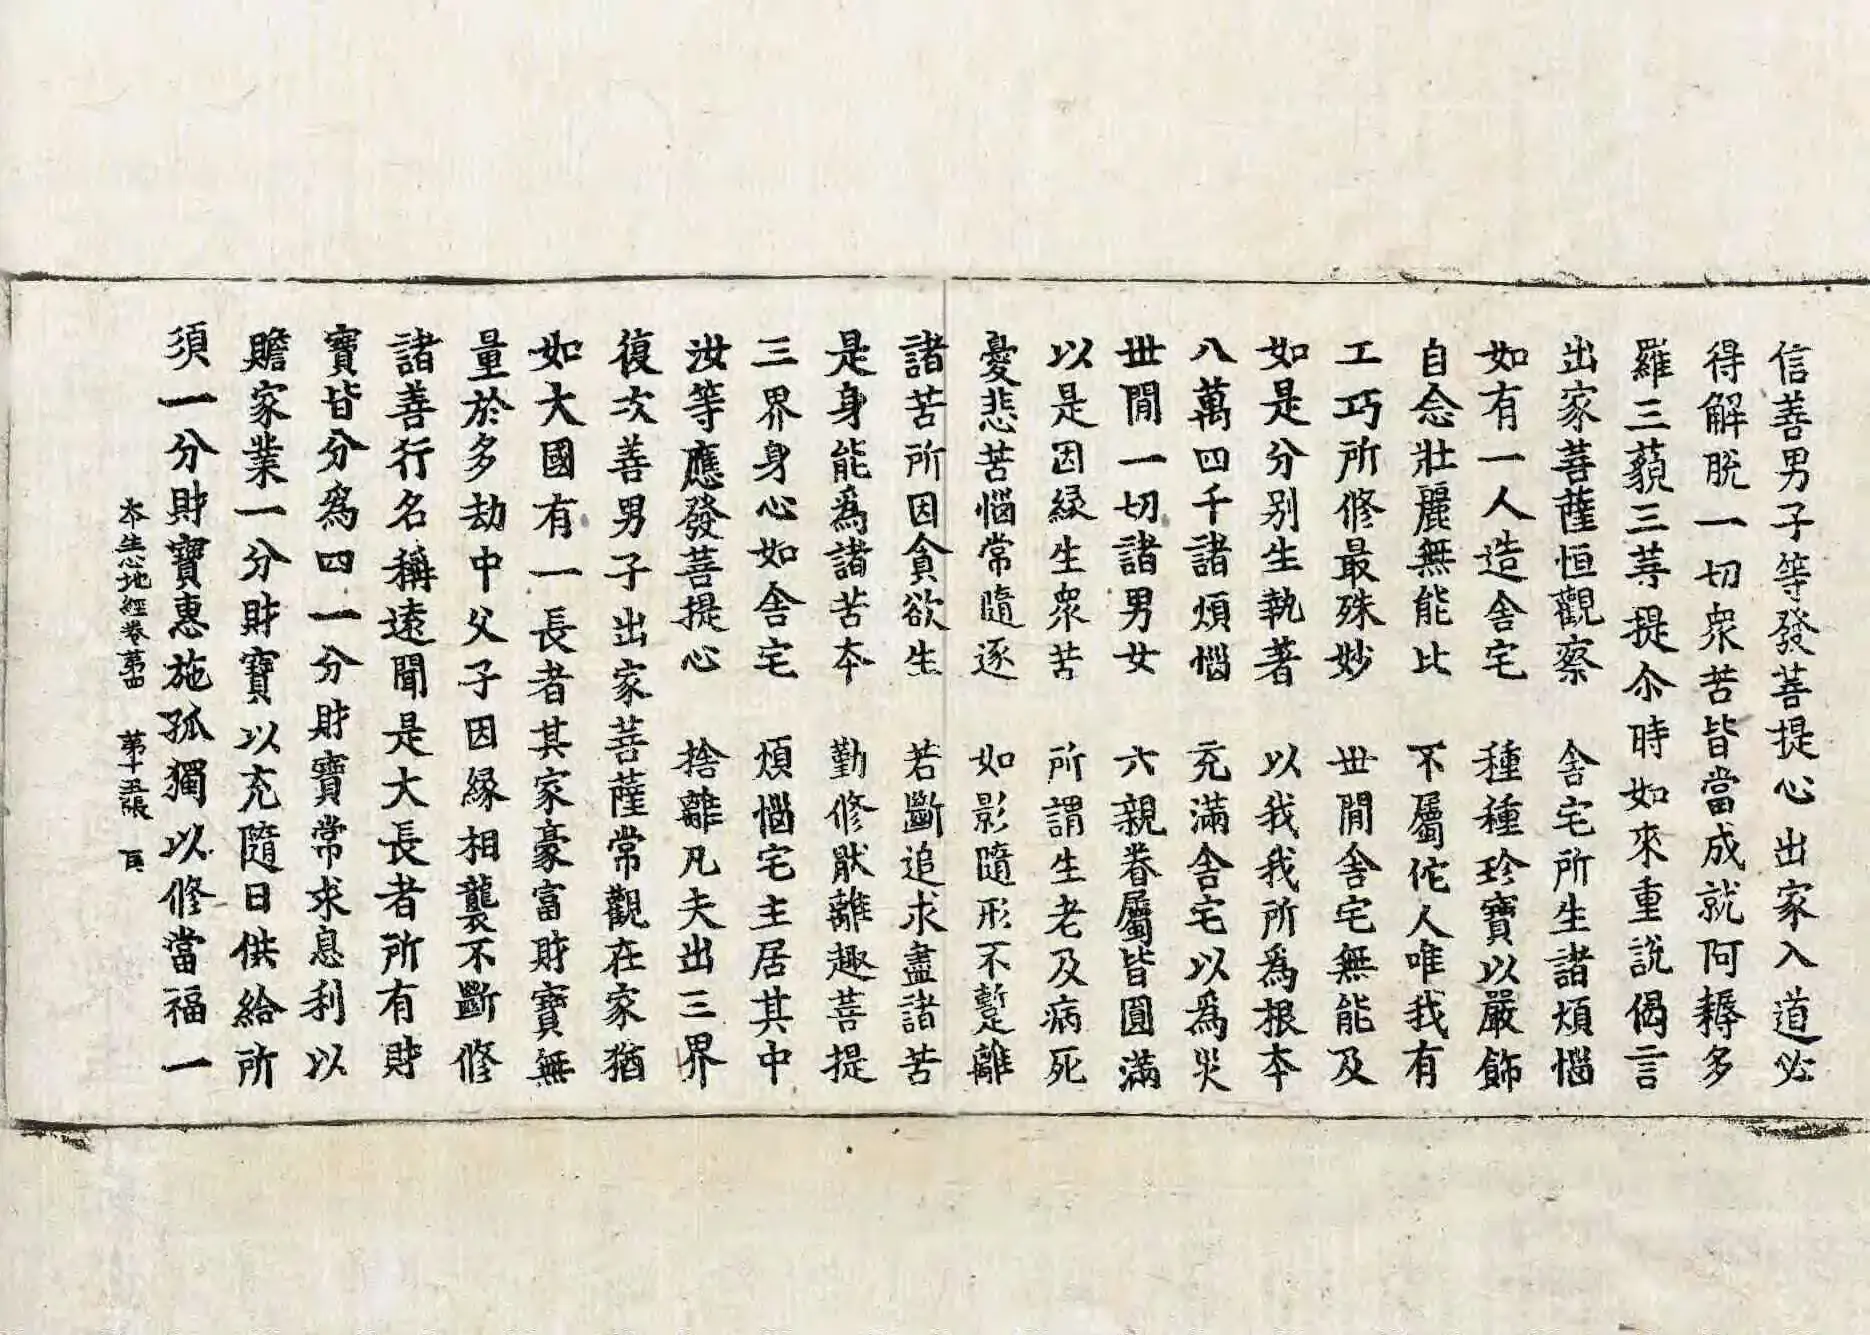 信善男子等發菩提心出家入道必
得解脫一切衆苦皆當成就阿耨多
羅三藐三菩提尒時如來重說偈言
出家菩薩恒觀察　舍宅所生諸煩惱
如有一人造舍宅　種種珍寶以嚴飾
自念壯麗無能比　不屬佗人唯我有
工巧所修最殊妙　世閒舍宅無能及
如是分别生執著　以我我所爲根本
八萬四千諸煩惱　充滿舍宅以爲災
世閒一切諸男女　六親眷屬皆圓滿
以是因緣生衆苦　所謂生老及病死
憂悲苦惱常隨逐　如影隨形不蹔離
諸苦所因貪欲生　若斷追求盡諸苦
是身能爲諸苦本　勤修猒離趣菩提
三界身心如舍宅　煩惱宅主居其中
汝等應發菩提心　捨離凡夫出三界
復次善男子出家菩薩常觀在家猶
如大國有一長者其家豪富財寶無
量於多劫中父子因緣相襲不斷修
諸善行名稱遠聞是大長者所有財
寶皆分爲四一分財寶常求息利以
贍家業一分財寶以充隨日供給所
須一分財寶惠施孤獨以修當福一
本生心地經卷第四　第十五張